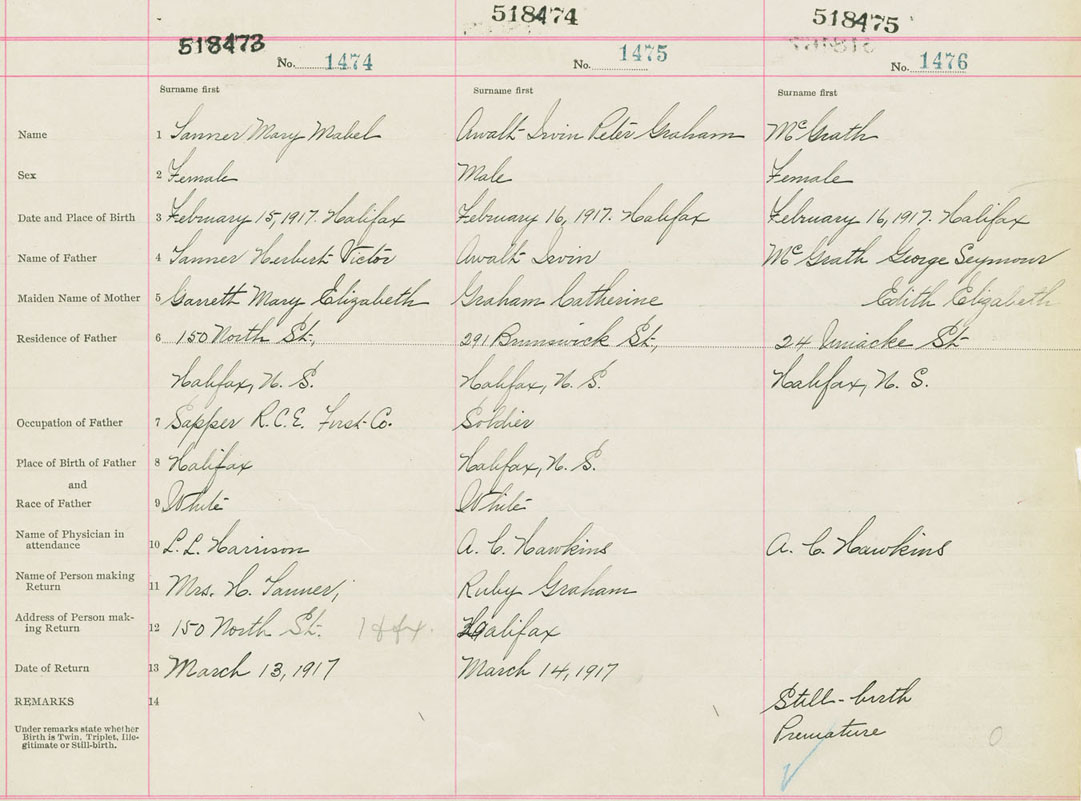 518473 518474 518475
No. 1474 No. 1475 No. 1476
Surname first Surname first Surname first
Name 1 Tanner Mary Mabel Awalt Irvin Peter Graham McGrath
Sex 2 Female Male Female
Date and Place of Birth 3 February 15, 1917. Halifax February 16, 1917. Halifax February 16, 1917. Halifax
Name of Father 4 Tanner Herbert Victor Awalt Irvin McGrath George Seymour
Maiden Name of Mother 5 Garrett Mary Elizabeth Graham Catherine Edith Elizabeth
Residence of Father 6 150 North St., 291 Brunswick St., 24 Uniacke St
Halifax, N. S. Halifax, N. S. Halifax, N. S.
Occupation of Father 7 Sapper R.C.E. First Co. Soldier
Place of Birth of Father 8 Halifax Halifax, N. S.
and
Race of Father 9 White White
Name of Physician in
attendance 10 L. L. Harrison A. C. Hawkins A. C. Hawkins
Name of Person making
Return 11 Mrs. H. Tanner, Ruby Graham
Address of Person mak-
ing Return 12 150 North St. Halifax
Date of Return 13 March 13, 1917 March 14, 1917
REMARKS 14 Still-birth
Under remarks state whether
Birth is Twin, Triplet, Ille-
gitimate or Still-birth.
Premature